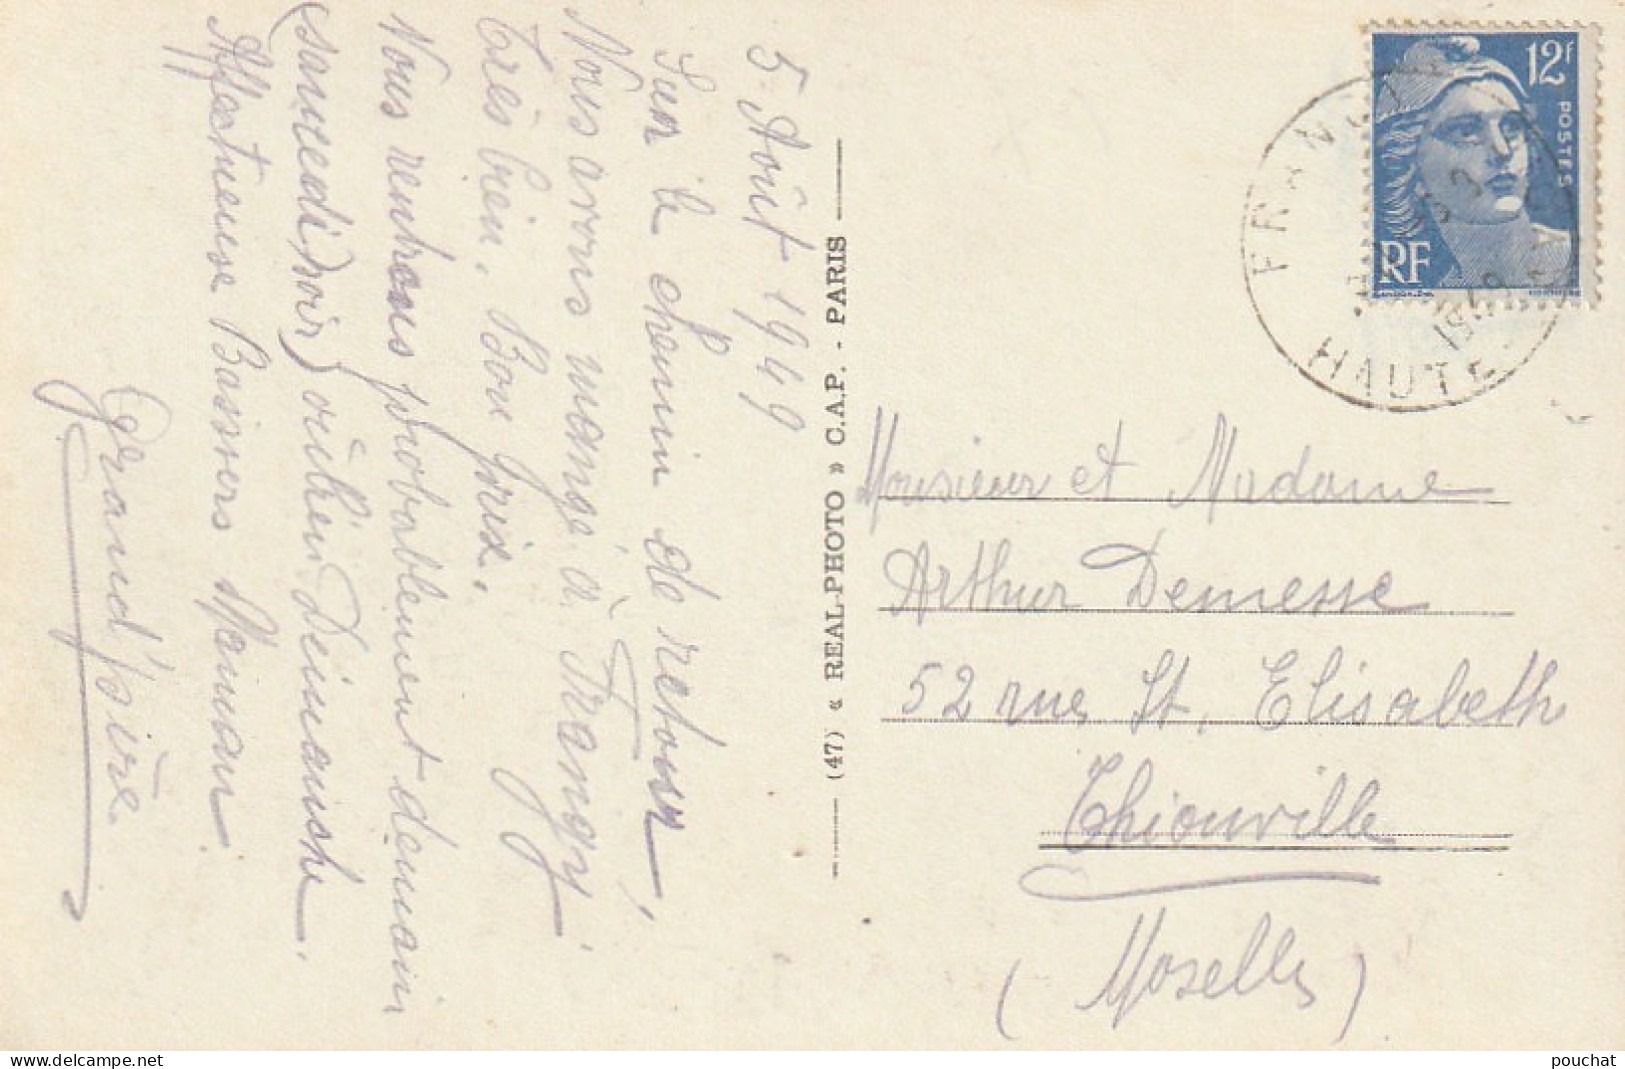 5 Août 1949
Sur le chemin de retour,
Nous avons mangé à Frangy
très bien. Bon prix.
Nous rentrons probablement demain
(samedi soir) où bien Dimanche.
Affectueuse Baisers Maman
Grand'père
(47) « REAL-PHOTO » C.A.P. - PARIS
12f
POSTES
RF
FRANGY
HAUTE-
Monsieur et Madame
Arthur Demesse
52 rue St. Elisabeth
Thionville
(Moselle)
pouchat